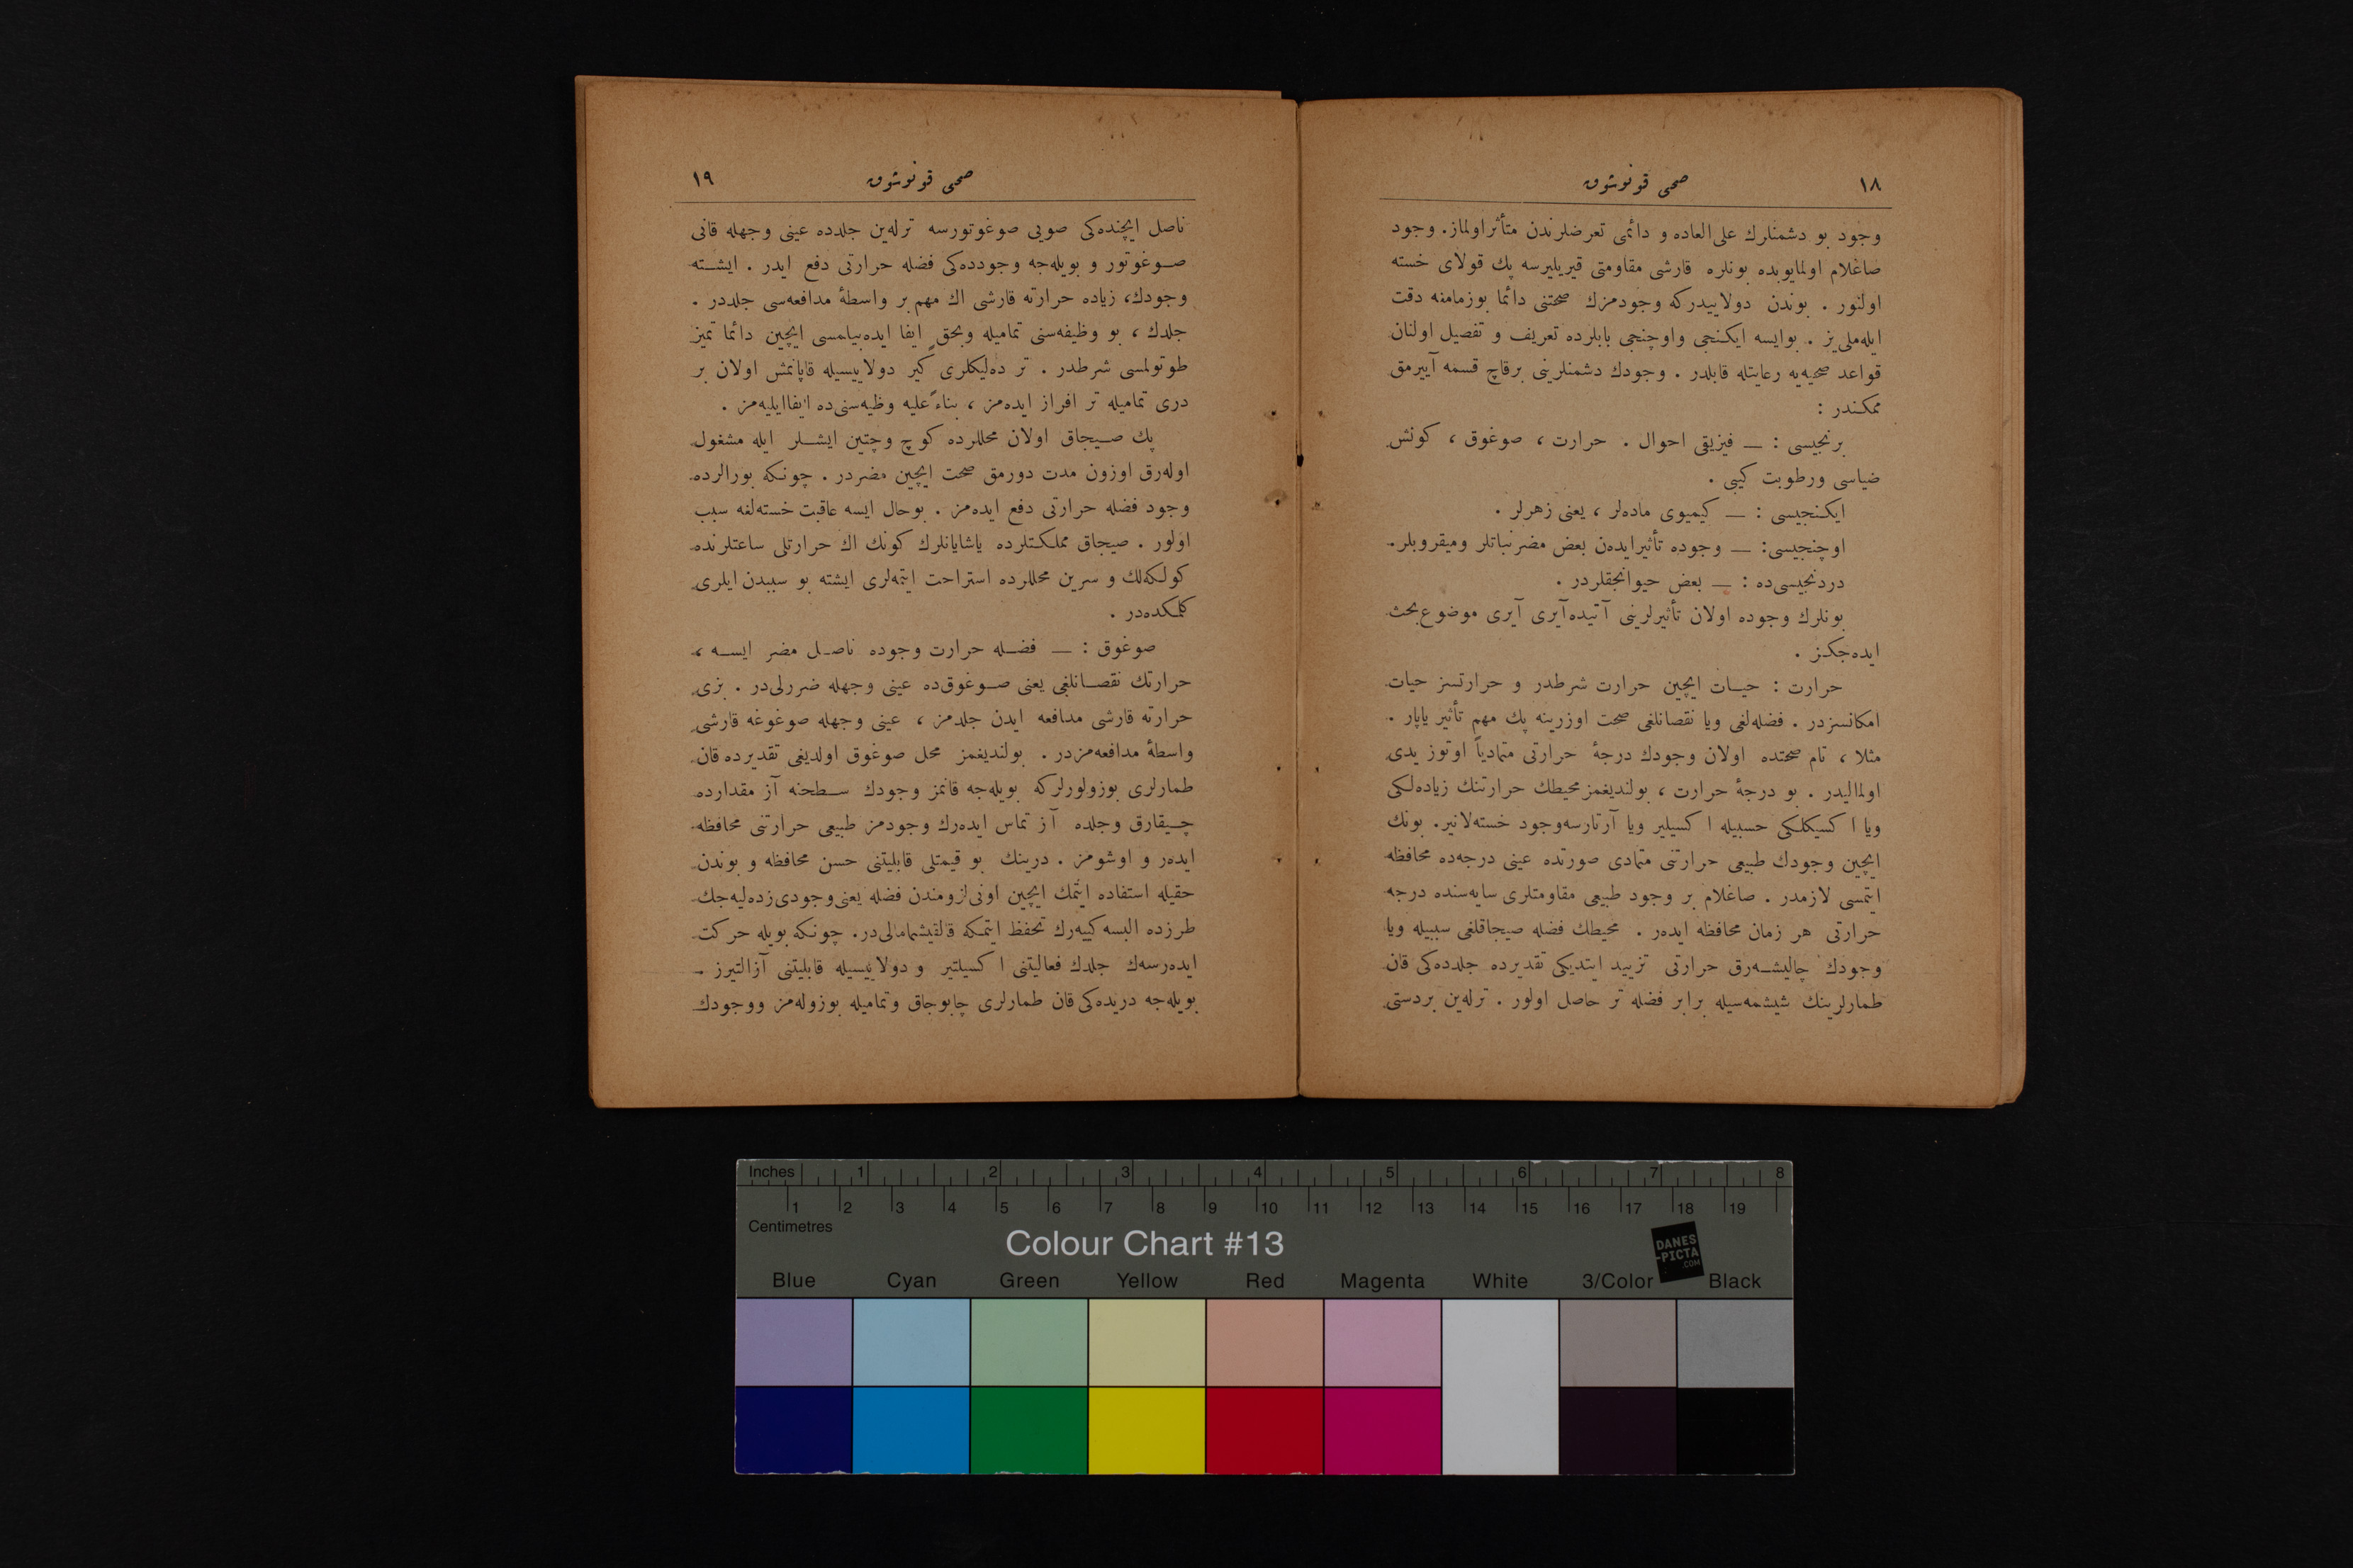 ١٨
صحی قونوشوق
وجود بو دشمنلرك علی‌العاده و دائمی تعرضلرندن متأثراولماز. وجود
صاغلام اولمایوبده بونلره قارشی مقاومتی قیریلیرسه پك قولای خسته
اولنور . بوندن دولاییدركه وجودمزك صحتنی دائما بوزمامنه دقت
ایله‌ملی‌یز . بوایسه ایكنجی واوچنجی بابلرده تعریف و تفصیل اولنان
قواعد صحیه‌یه رعایتله قابلدر . وجودك دشمنلرینی برقاچ قسمه آییرمق
ممكندر :
برنجیسی : — فیزیقی احوال . حرارت ، صوغوق ، كونش
ضیاسی ورطوبت كیبی .
ایكنجیسی : — كیمیوی ماده‌لر ، یعنی زهرلر .
اوچنجیسی: — وجوده تأثیرایده‌ن بعض مضرنباتلر ومیقروبلر.
دردنجیسی‌ده : — بعض حیوانجقلردر .
بونلرك وجوده اولان تأثیرلرینی آتیده‌آیری آیری موضوع‌بحث
ایده‌جكز .
حرارت : حیات ایچین حرارت شرطدر و حرارتسز حیات
امكانسزدر . فضله‌لغی ویا نقصانلغی صحت اوزرینه پك مهم تأثیر یاپار .
مثلا ، تام صحتده اولان وجودك درجهٔ حرارتی متمادیاً اوتوز یدی
اولمالیدر . بو درجهٔ حرارت ، بولندیغمز محیطك حرارتنك زیاده‌لكی
ویا اكسیكلكی حسبیله اكسیلیر ویا آرتارسه‌وجود خسته‌لانیر. بونك
ایچین وجودك طبیعی حرارتنی متمادی صورتده عینی درجه‌ده محافظه
ایتمسی لازمدر . صاغلام بر وجود طبیعی مقاومتلری سایه‌سنده درجه
حرارتی هر زمان محافظه ایده‌ر . محیطك فضله صیجاقلغی سببیله ویا
وجودك چالیشه‌رق حرارتی تزیید ایتدیكی تقدیرده جلدده‌كی قان
طمارلرینك شیشمه‌سیله برابر فضله تر حاصل اولور . ترله‌ین بردستی
١٩
صحی قونوشوق
ناصل ایچنده‌كی صویی صوغوتورسه ترله‌ین جلدده عینی وجهله قانی
صوغوتور و بویله‌جه وجودده‌كی فضله حرارتی دفع ایدر . ایشته
وجودك، زیاده حرارته قارشی اك مهم بر واسطهٔ مدافعه‌سی جلددر .
جلدك ، بو وظیفه‌سنی تمامیله وبحقٍ ایفا ایده‌بیلمسی ایچین دائما تمیز
طوتولمسی شرطدر . تر ده‌لیكلری كیر دولاییسیله قاپانمش اولان بر
دری تمامیله تر افراز ایده‌مز ، بناءً علیه وظیه‌سنی‌ده ایفاایلیه‌مز .
پك صیجاق اولان محللرده كوچ وچتین ایشلر ایله مشغول
اوله‌رق اوزون مدت دورمق صحت ایچین مضردر . چونكه بورالرده
وجود فضله حرارتی دفع ایده‌مز . بوحال ایسه عاقبت خسته‌لغه سبب
اولور . صیجاق مملكتلرده یاشایانلرك كونك اك حرارتلی ساعتلرنده
كولكه‌لك و سرین محللرده استراحت ایتمه‌لری ایشته بو سببدن ایلری
كلمكده‌در .
صوغوق : — فضله حرارت وجوده ناصل مضر ایسه ،
حرارتك نقصانلغی یعنی صوغوق‌ده عینی وجهله ضررلی‌در . بزی
حرارته قارشی مدافعه ایدن جلدمز ، عینی وجهله صوغوغه قارشی
واسطهٔ مدافعه‌مزدر . بولندیغمز محل صوغوق اولدیغی تقدیرده قان
طمارلری بوزولورلركه بویله‌جه قانمز وجودك سطحنه آز مقدارده
چیقارق وجلده آز تماس ایده‌رك وجودمز طبیعی حرارتنی محافظه
ایده‌ر و اوشومز . درینك بو قیمتلی قابلیتنی حسن محافظه و بوندن
حقیله استفاده ایتمك ایچین اونی‌لزومندن فضله یعنی‌وجودی‌زده‌لیه‌جك
طرزده البسه كییه‌رك تحفظ ایتمكه قالقیشمامالی‌در. چونكه بویله حركت
ایده‌رسه‌ك جلدك فعالیتنی اكسیلتیر و دولاییسیله قابلیتنی آزالتیرز .
بویله‌جه دریده‌كی قان طمارلری چابوجاق وتمامیله بوزوله‌مز ووجودك
Inches 1 2 3 4 5 6 7 8
1 2 3 4 5 6 7 8 9 10 11 12 13 14 15 16 17 18 19
Centimetres
Colour Chart #13
DANES
-PICTA
.COM
Blue Cyan Green Yellow Red Magenta White 3/Color Black